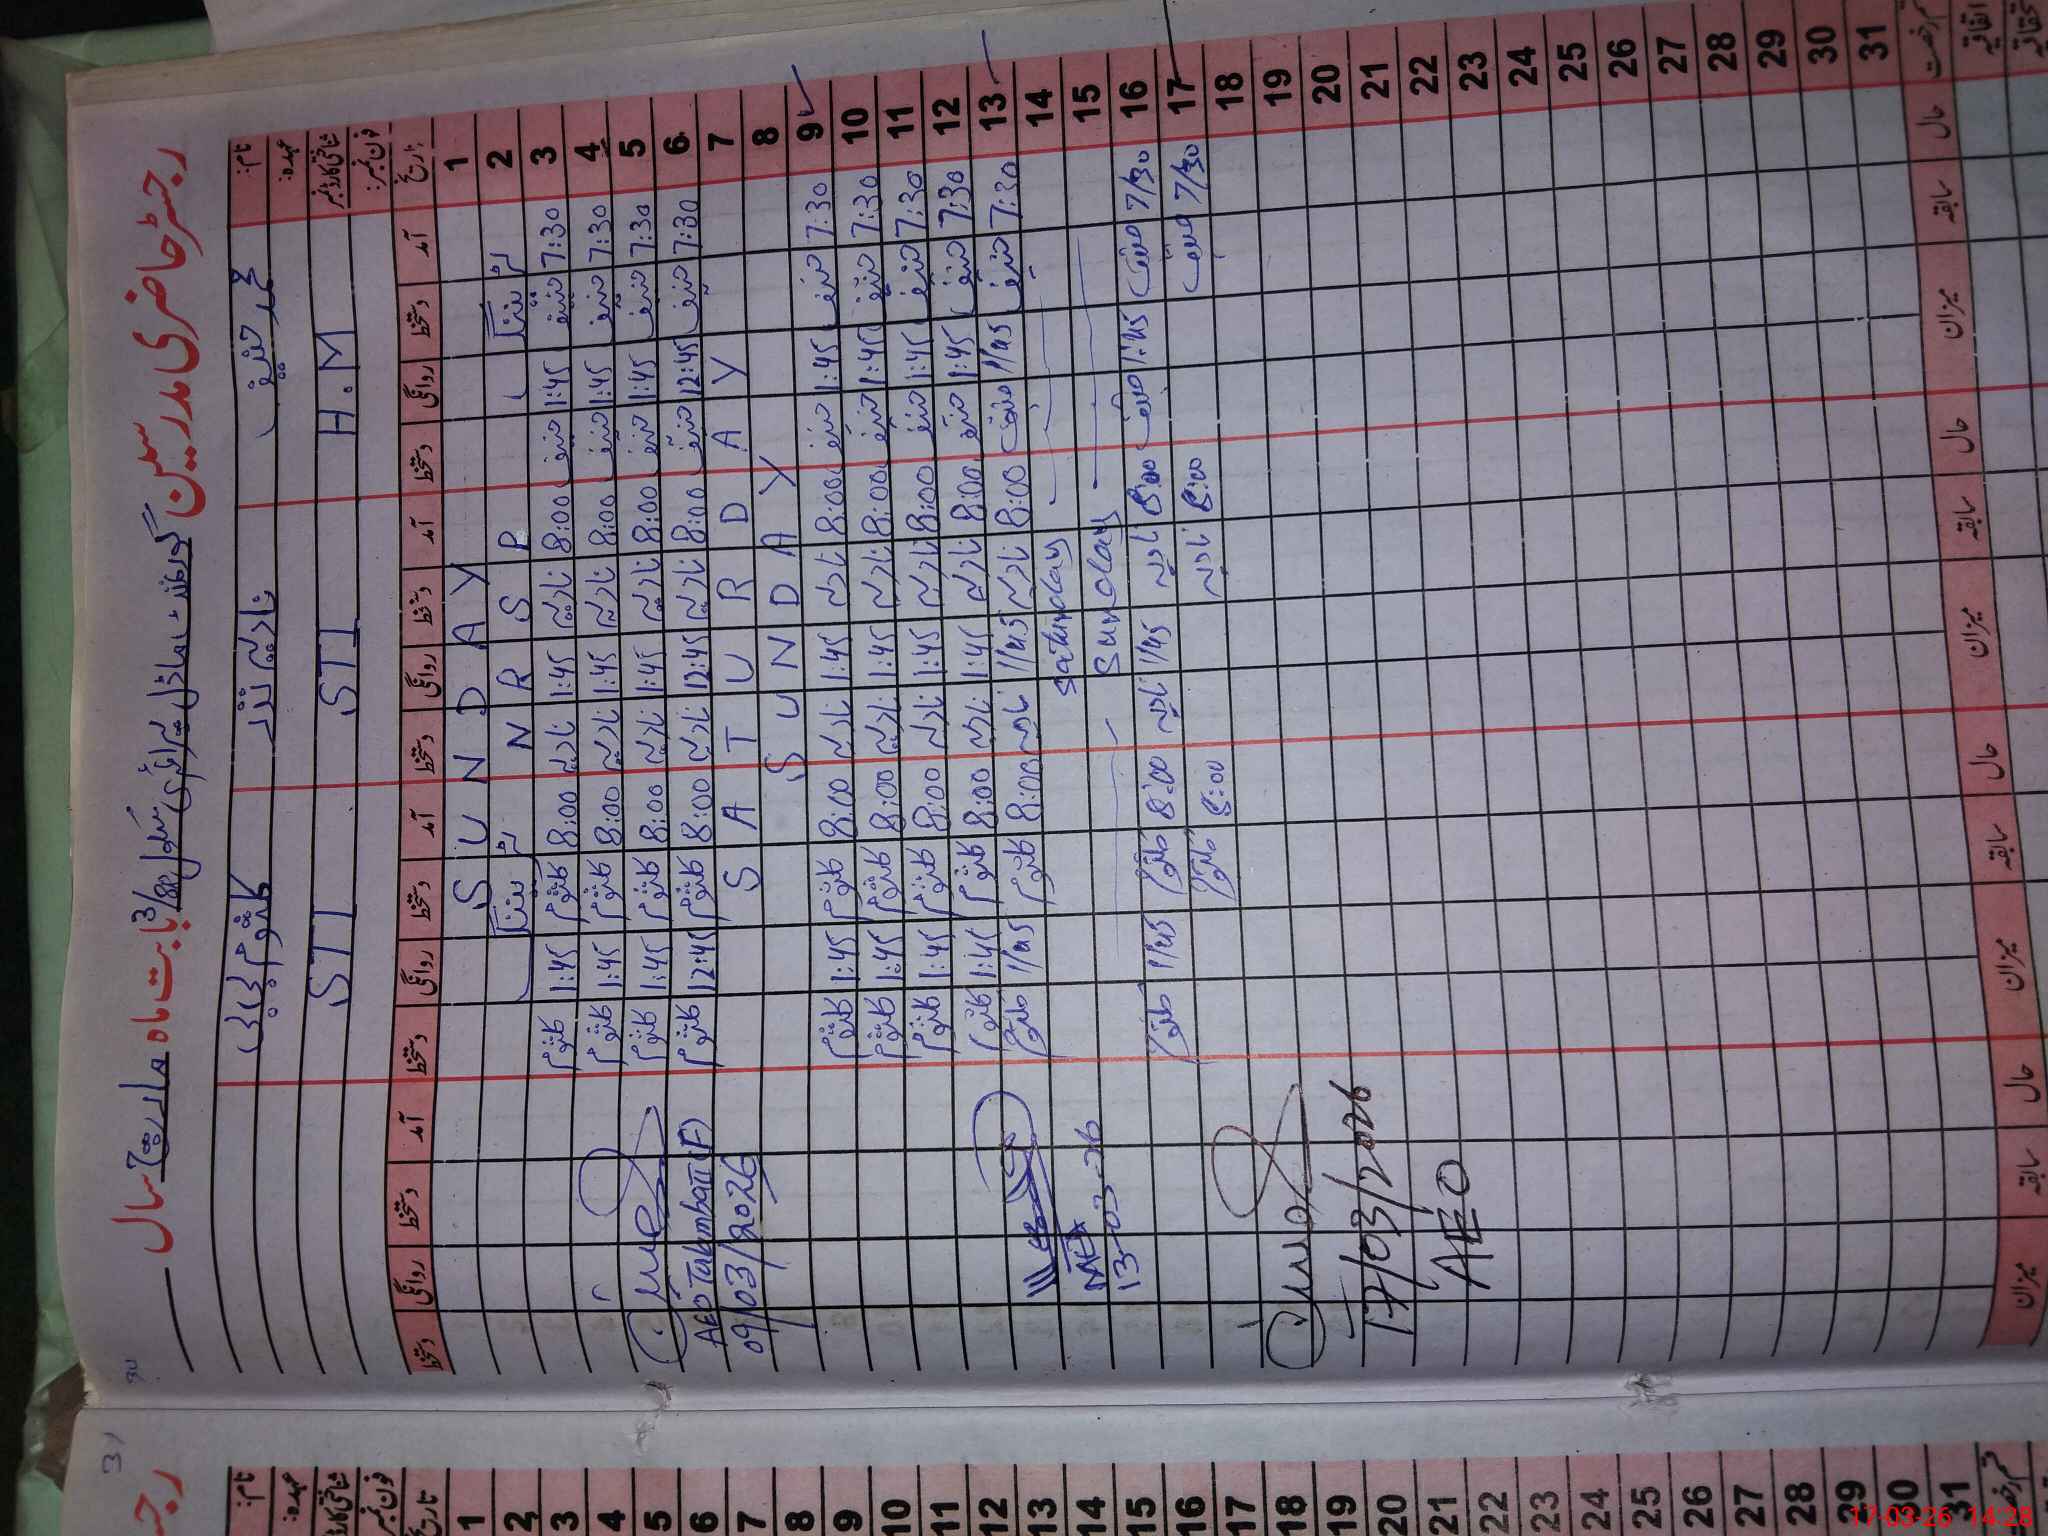 رجسٹر حاضری مدرسین گورنمنٹ ماڈل پرائمری سکول بابت ماہ مارچ سال
نام: محمد حنیف نادیہ نذر کلثوم بی بی
عہدہ: H.M STI STI
شناختی کارڈ نمبر
فون نمبر:
تاریخ آمد دستخط روانگی دستخط آمد دستخط روانگی دستخط آمد دستخط روانگی دستخط آمد دستخط روانگی دستخط
1 SUNDAY
2 P S R N
3 7:30 حنیف 1:45 حنیف 8:00 نادیہ 1:45 نادیہ 8:00 کلثوم 1:45 کلثوم
4 7:30 حنیف 1:45 حنیف 8:00 نادیہ 1:45 نادیہ 8:00 کلثوم 1:45 کلثوم
5 7:30 حنیف 1:45 حنیف 8:00 نادیہ 1:45 نادیہ 8:00 کلثوم 1:45 کلثوم
6 7:30 حنیف 12:45 حنیف 8:00 نادیہ 12:45 نادیہ 8:00 کلثوم 12:45 کلثوم
7 SATURDAY
8 SUNDAY
AEO Talambatt(F)
09/03/2026
9 7:30 حنیف 1:45 حنیف 8:00 نادیہ 1:45 نادیہ 8:00 کلثوم 1:45 کلثوم
10 7:30 حنیف 1:45 حنیف 8:00 نادیہ 1:45 نادیہ 8:00 کلثوم 1:45 کلثوم
11 7:30 حنیف 1:45 حنیف 8:00 نادیہ 1:45 نادیہ 8:00 کلثوم 1:45 کلثوم
12 7:30 حنیف 1:45 حنیف 8:00 نادیہ 1:45 نادیہ 8:00 کلثوم 1:45 کلثوم
13 7:30 حنیف 1/45 حنیف 8:00 نادیہ 1/45 نادیہ 8:00 کلثوم 1/45 کلثوم
14 saturday
15 Sunday
MEA
13-03-26
16 7/30 حنیف 1:45 حنیف 8:00 نادیہ 1/45 نادیہ 8:00 کلثوم 1/45 کلثوم
17 7/30 حنیف 8:00 نادیہ 8:00 کلثوم
18
19
20
17/03/2026
21
22
AEO
23
24
25
26
27
28
29
30
31
قسم رخصت سابقہ حال میزان سابقہ حال میزان سابقہ حال میزان سابقہ حال میزان
اتفاقیہ
31
نام:
عہدہ:
شناختی کارڈ نمبر
فون نمبر:
تاریخ
1
2
3
4
5
6
7
8
9
10
11
12
13
14
15
16
17
18
19
20
21
22
23
24
25
26
27
28
29
30
31
17-03-26 14:28